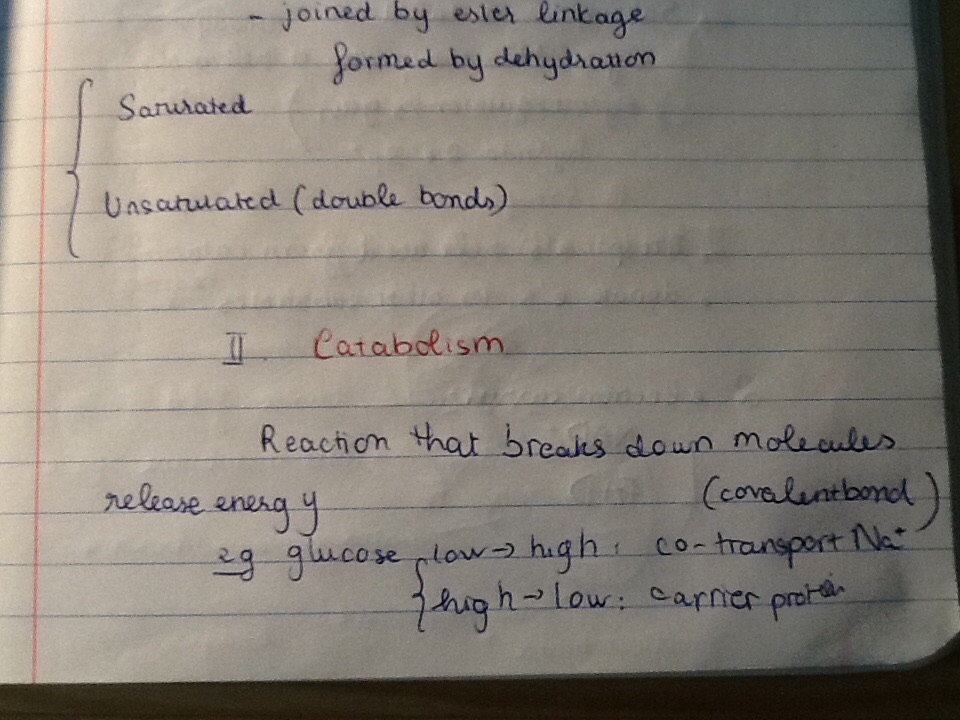 - joined by ester linkage
formed by dehydration
Saturated
Unsaturated (double bonds)
II. Catabolism
Reaction that breaks down molecules
release energy (covalent bond)
eg glucose low → high : co-transport Na⁺
high → low : carrier protein